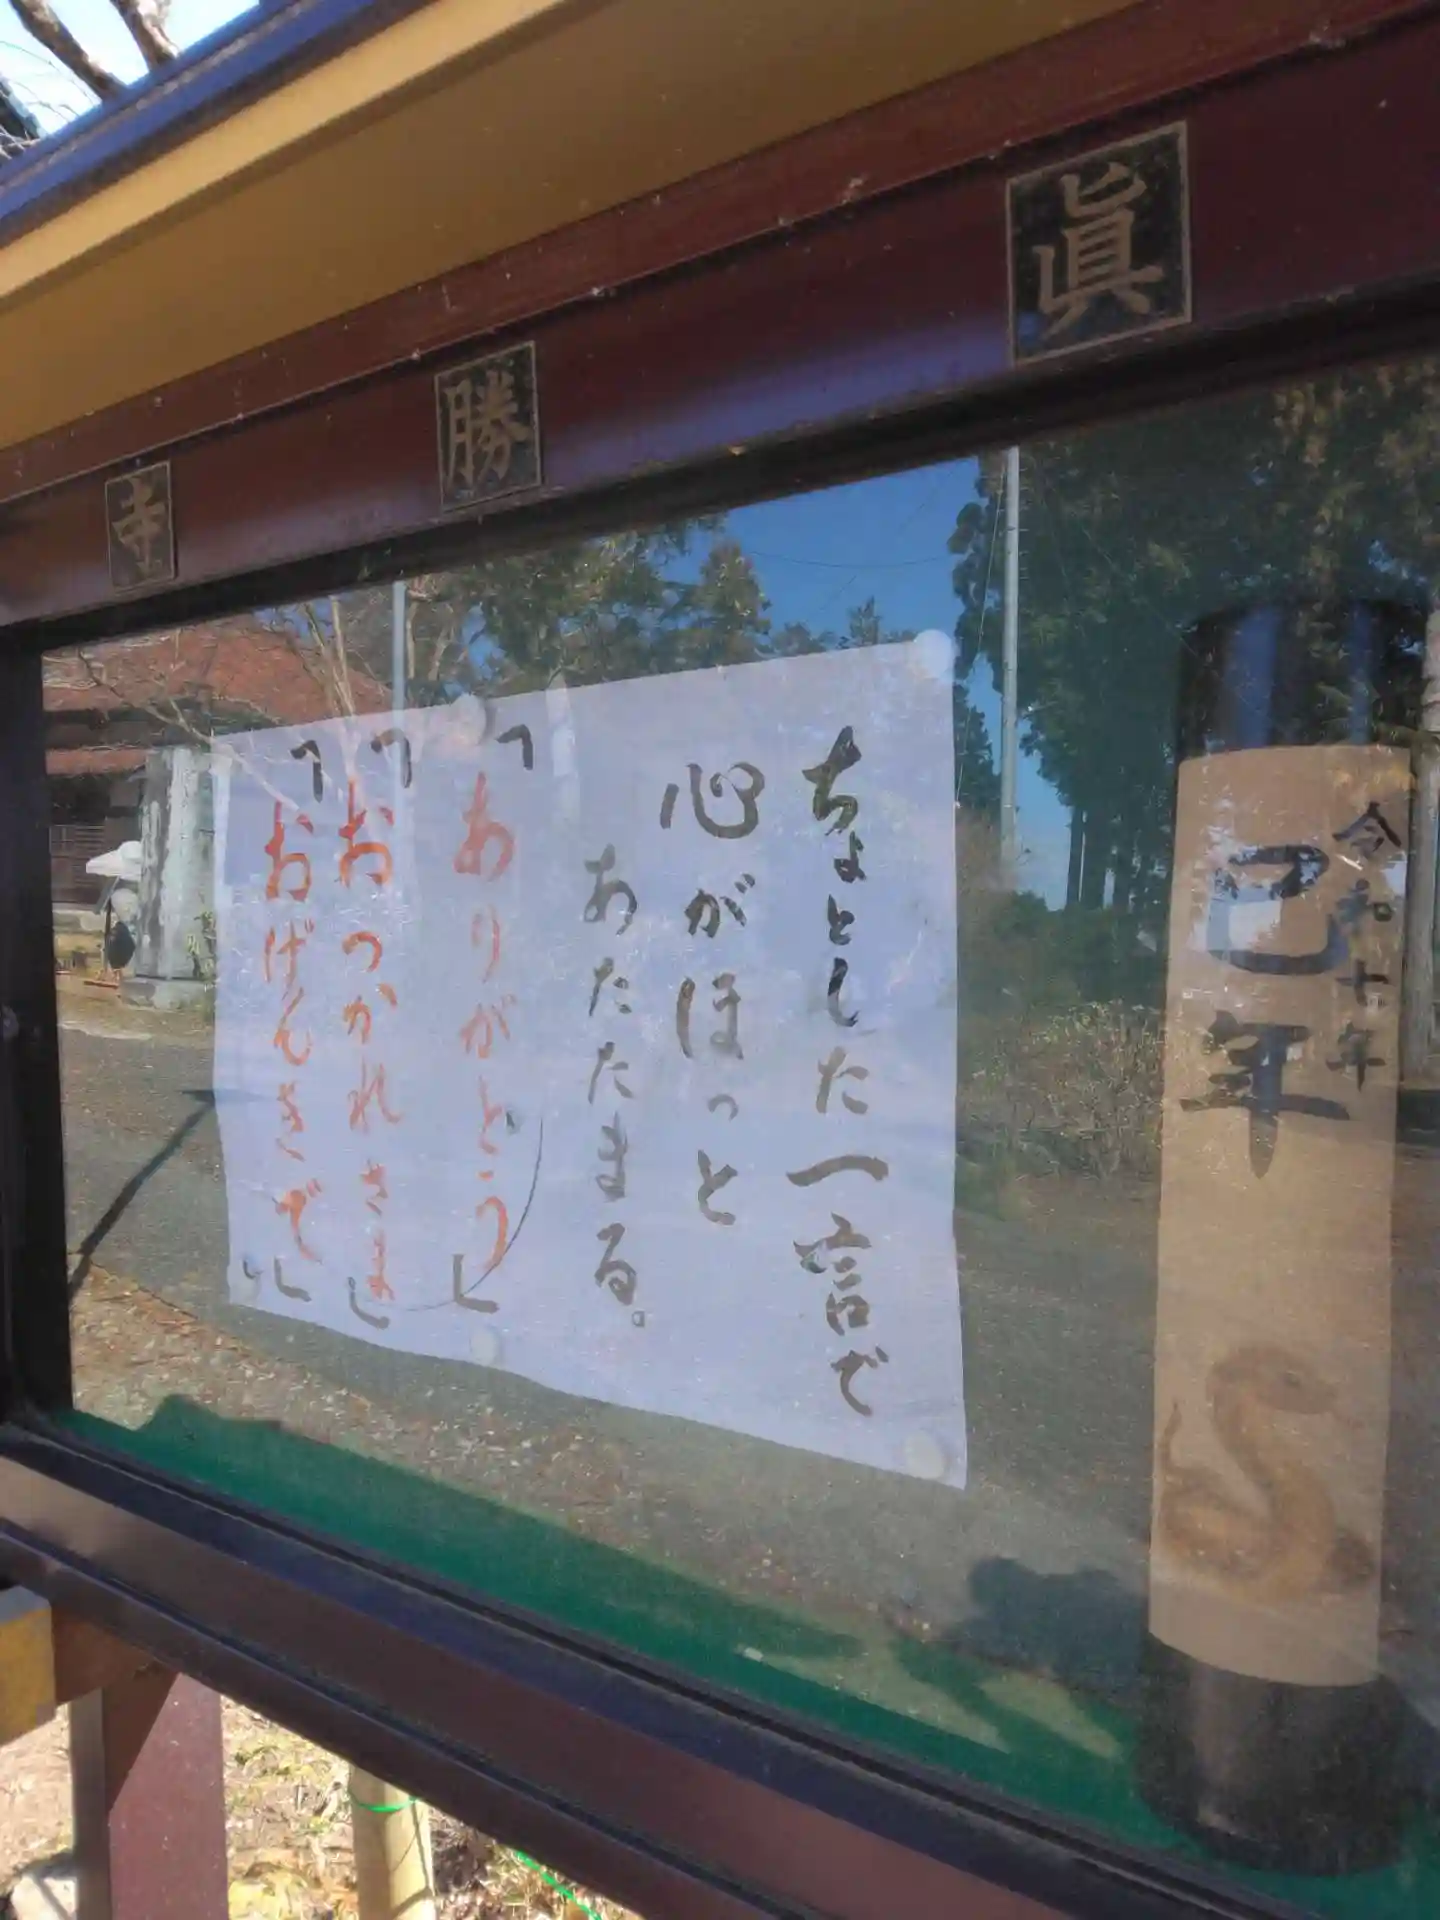 眞勝寺
令和七年
巳年
ちょとした一言で
心がほっと
あたたまる。
「ありがとう」
「おつかれさま」
「おげんきで」